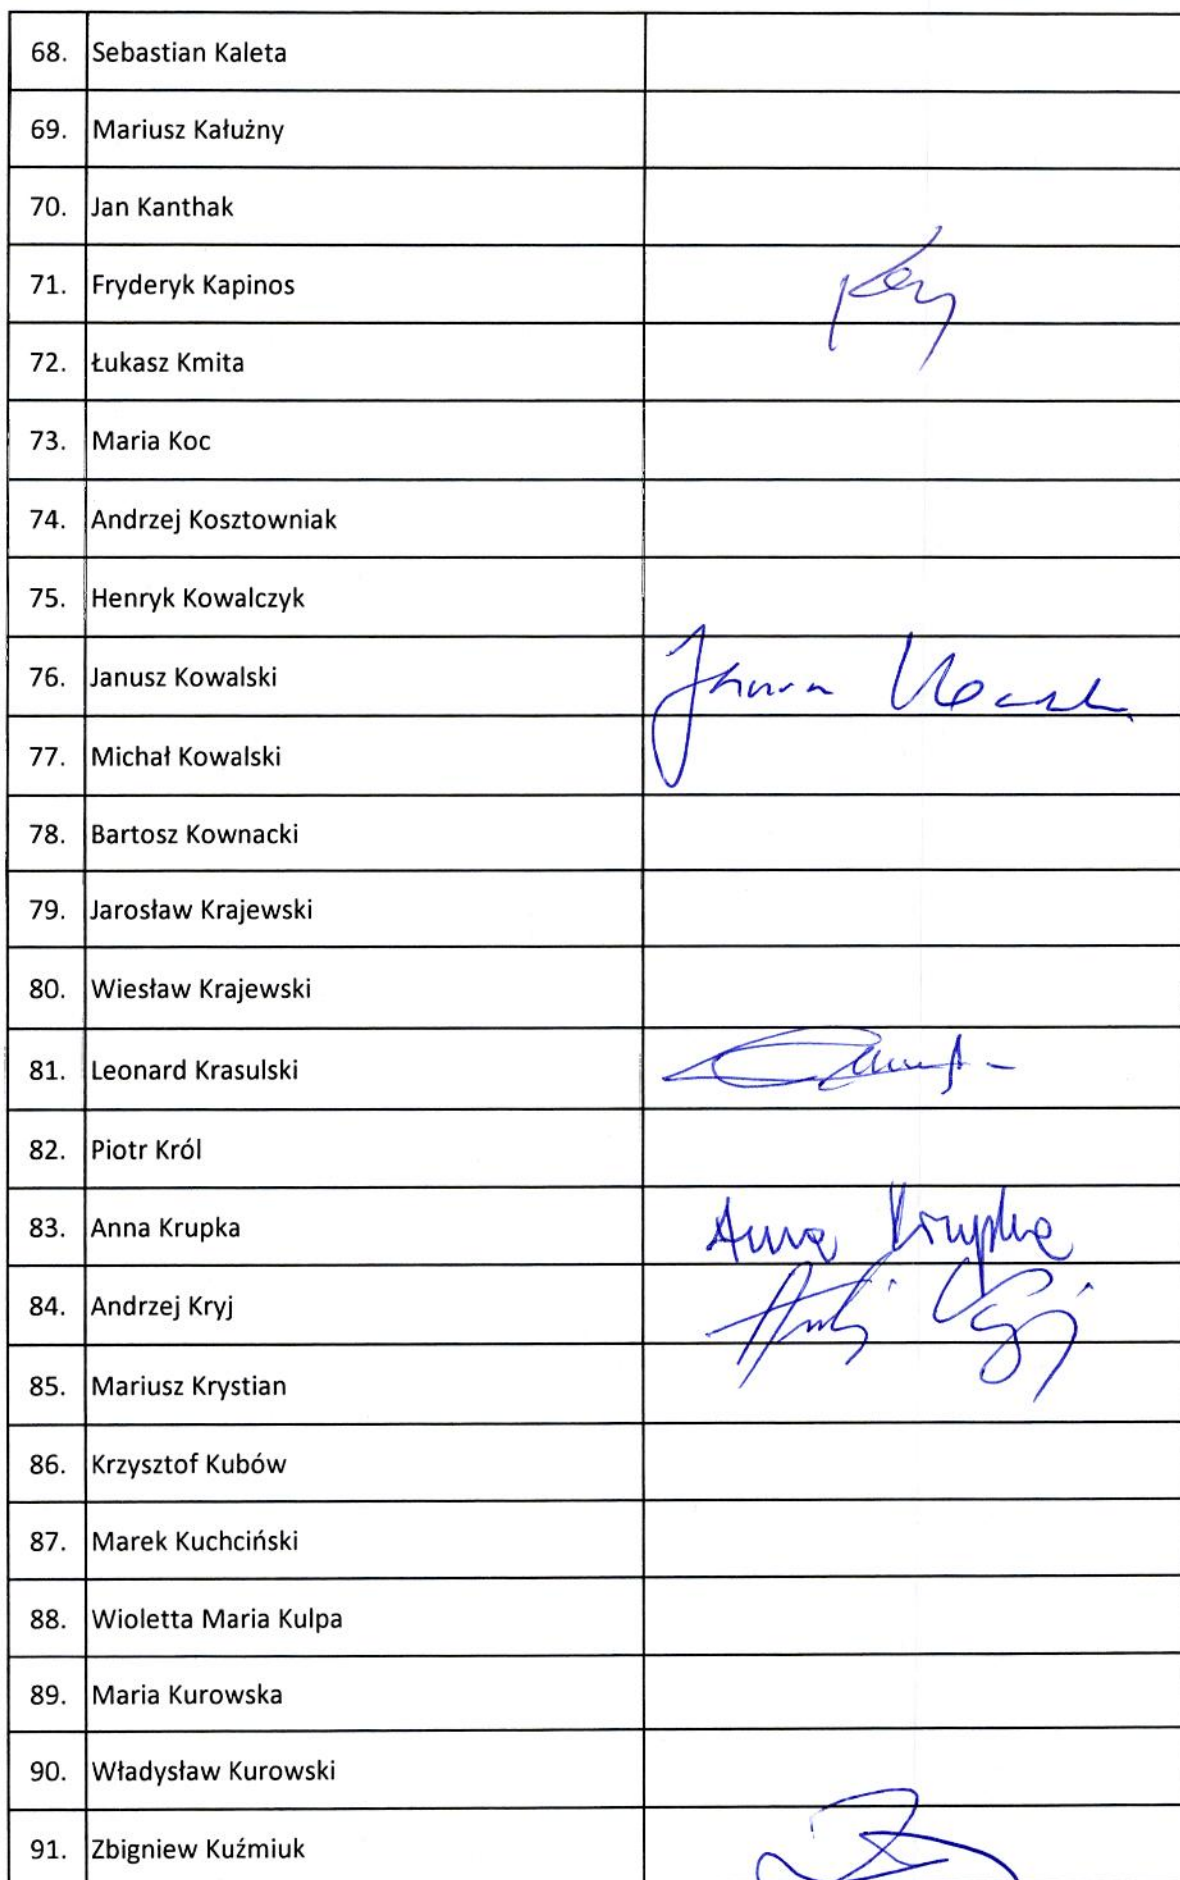 68. Sebastian Kaleta
69. Mariusz Kałużny
70. Jan Kanthak
71. Fryderyk Kapinos
72. Łukasz Kmita
73. Maria Koc
74. Andrzej Kosztowniak
75. Henryk Kowalczyk
76. Janusz Kowalski
77. Michał Kowalski
78. Bartosz Kownacki
79. Jarosław Krajewski
80. Wiesław Krajewski
81. Leonard Krasulski
82. Piotr Król
83. Anna Krupka Anna Krupka
84. Andrzej Kryj
85. Mariusz Krystian
86. Krzysztof Kubów
87. Marek Kuchciński
88. Wioletta Maria Kulpa
89. Maria Kurowska
90. Władysław Kurowski
91. Zbigniew Kuźmiuk